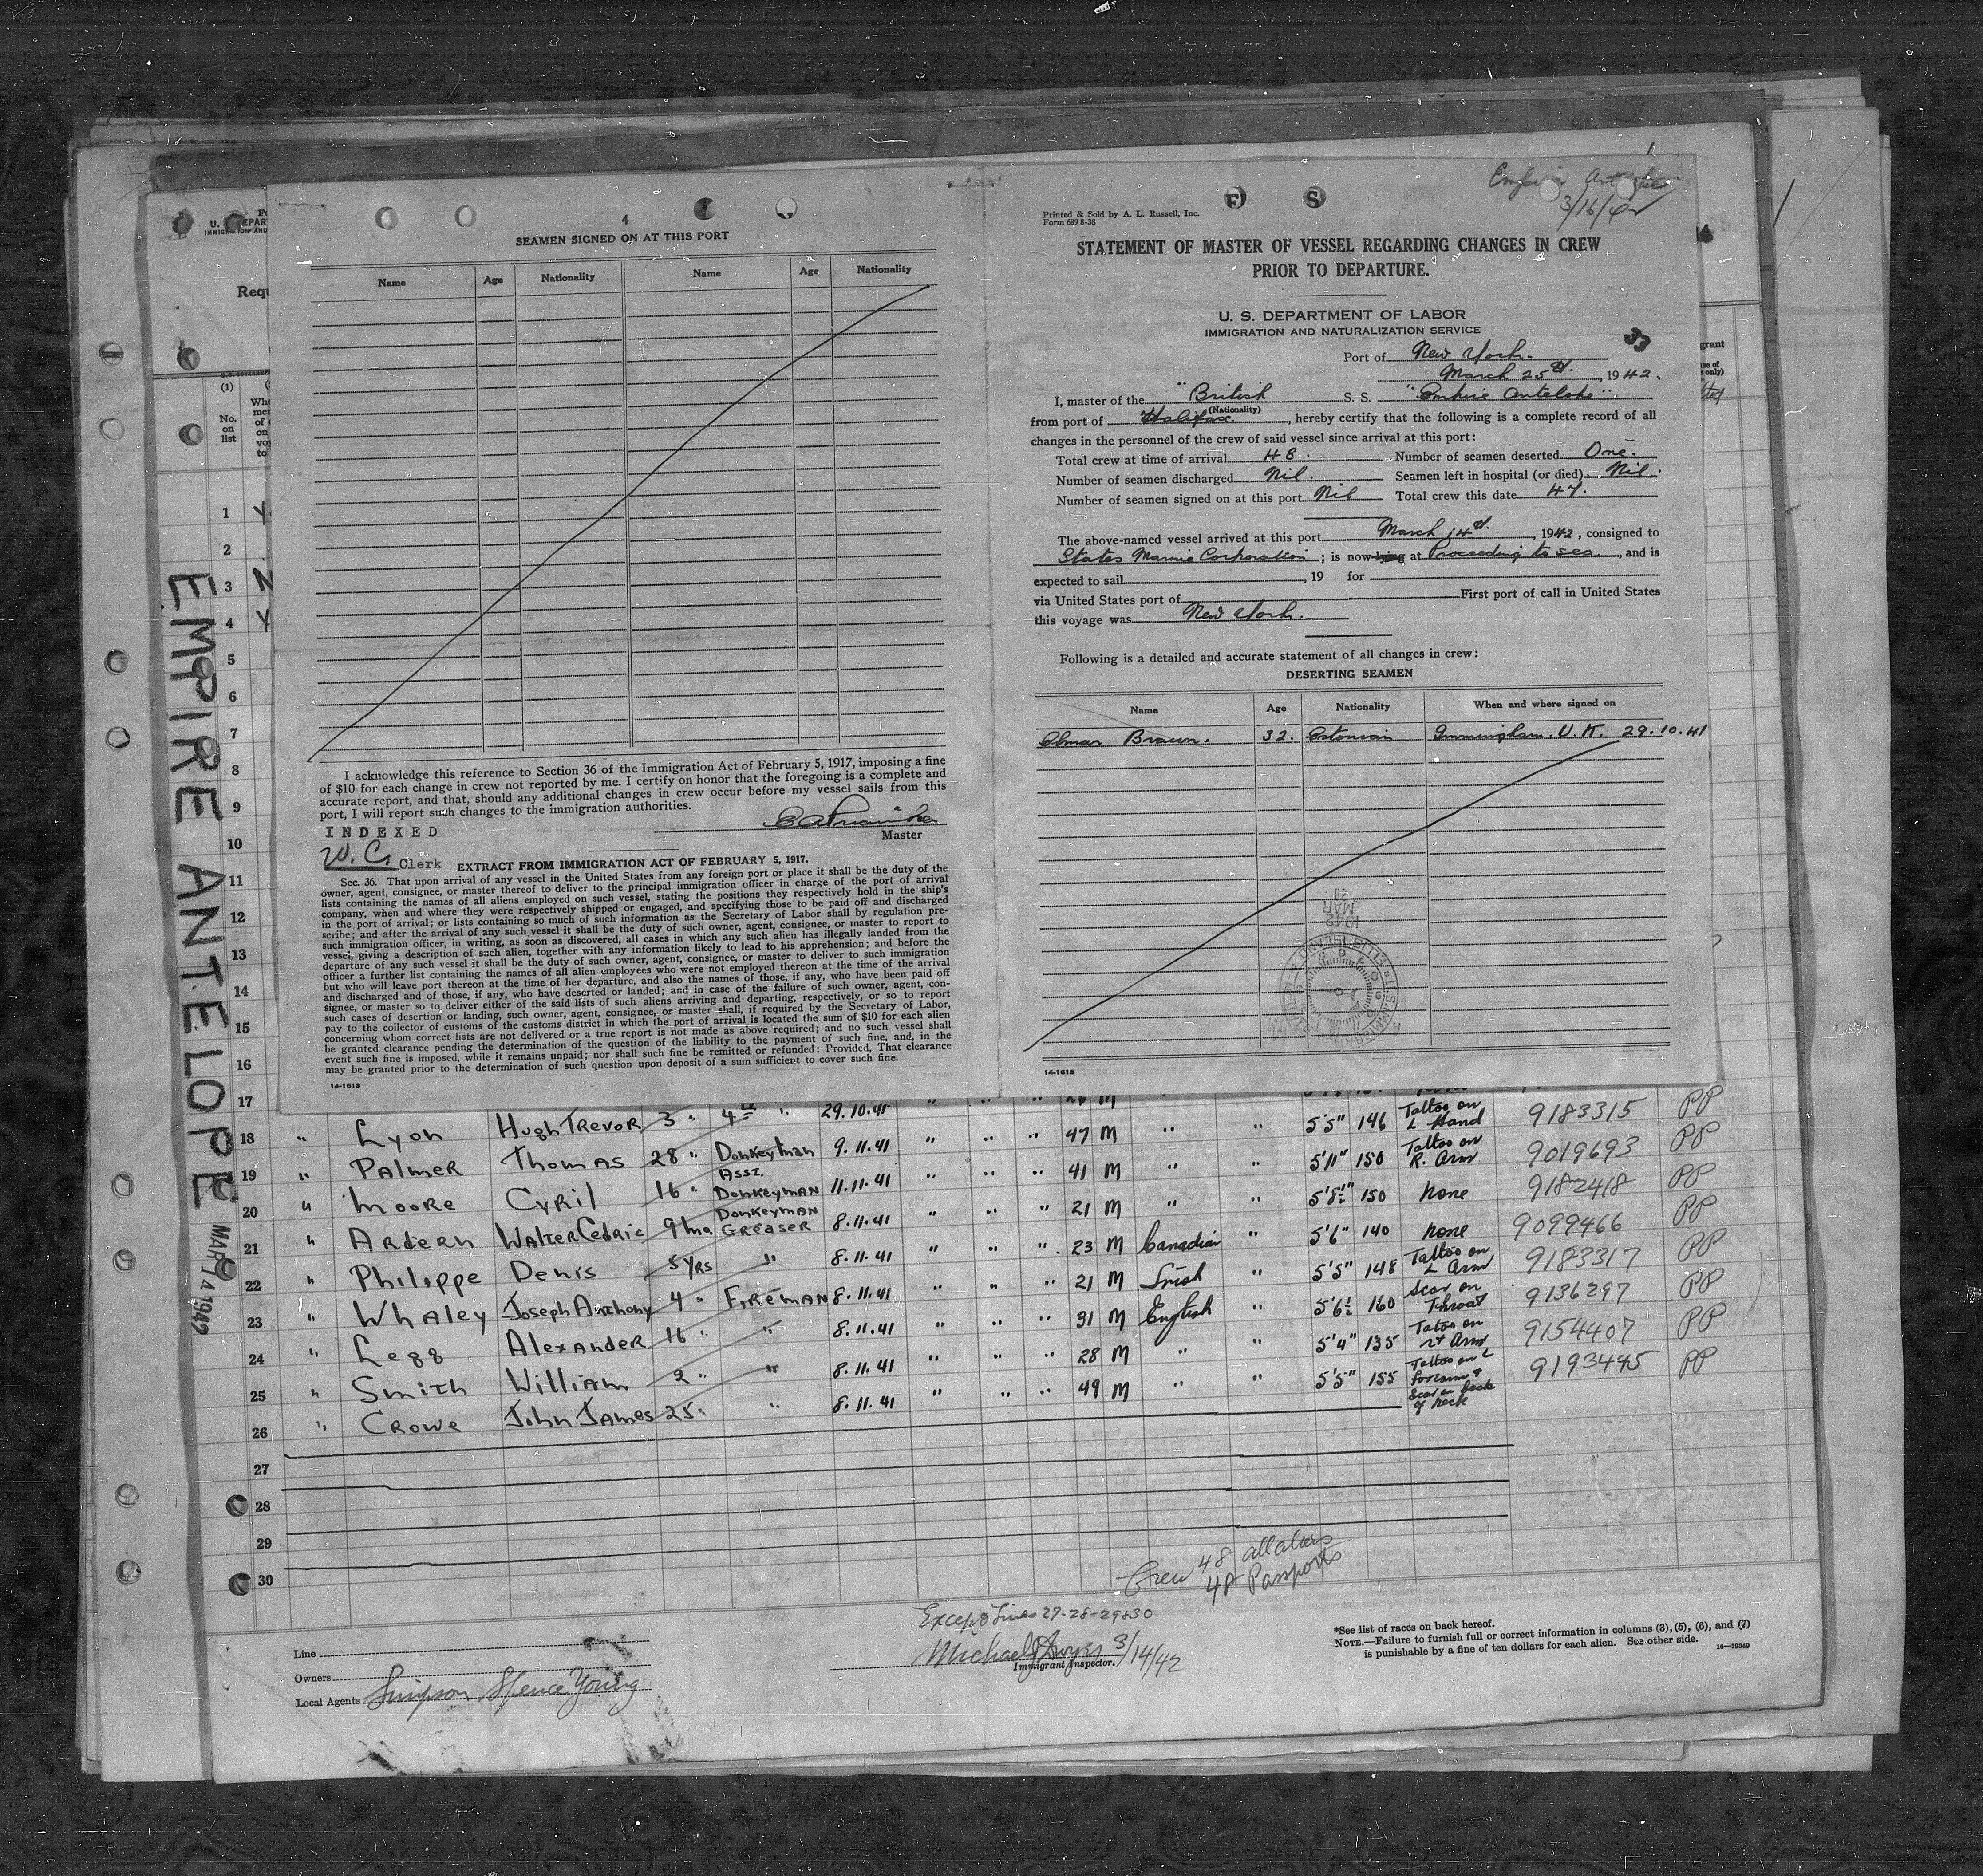 EMPIRE ANTELOPE MAR 14 1942
4
SEAMEN SIGNED ON AT THIS PORT
Name Age Nationality Name Age Nationality
I acknowledge this reference to Section 36 of the Immigration Act of February 5, 1917, imposing a fine
of $10 for each change in crew not reported by me. I certify on honor that the foregoing is a complete and
accurate report, and that, should any additional changes in crew occur before my vessel sails from this
port, I will report such changes to the immigration authorities.
INDEXED
Master
W. C. Clerk
EXTRACT FROM IMMIGRATION ACT OF FEBRUARY 5, 1917.
Sec. 36. That upon arrival of any vessel in the United States from any foreign port or place it shall be the duty of the
owner, agent, consignee, or master thereof to deliver to the principal immigration officer in charge of the port of arrival
lists containing the names of all aliens employed on such vessel, stating the positions they respectively hold in the ship's
company, when and where they were respectively shipped or engaged, and specifying those to be paid off and discharged
in the port of arrival; or lists containing so much of such information as the Secretary of Labor shall by regulation pre-
scribe; and after the arrival of any such vessel it shall be the duty of such owner, agent, consignee, or master to report to
such immigration officer, in writing, as soon as discovered, all cases in which any such alien has illegally landed from the
vessel, giving a description of such alien, together with any information likely to lead to his apprehension; and before the
departure of any such vessel it shall be the duty of such owner, agent, consignee, or master to deliver to such immigration
officer a further list containing the names of all alien employees who were not employed thereon at the time of the arrival
but who will leave port thereon at the time of her departure, and also the names of those, if any, who have been paid off
and discharged and of those, if any, who have deserted or landed; and in case of the failure of such owner, agent, con-
signee, or master so to deliver either of the said lists of such aliens arriving and departing, respectively, or so to report
such cases of desertion or landing, such owner, agent, consignee, or master shall, if required by the Secretary of Labor,
pay to the collector of customs of the customs district in which the port of arrival is located the sum of $10 for each alien
concerning whom correct lists are not delivered or a true report is not made as above required; and no such vessel shall
be granted clearance pending the determination of the question of the liability to the payment of such fine, and, in the
event such fine is imposed, while it remains unpaid; nor shall such fine be remitted or refunded: Provided, That clearance
may be granted prior to the determination of such question upon deposit of a sum sufficient to cover such fine.
14-1613
F S
Empire Antelope
3/16/42
Printed & Sold by A. L. Russell, Inc.
Form 689 8-38
STATEMENT OF MASTER OF VESSEL REGARDING CHANGES IN CREW
PRIOR TO DEPARTURE.
U. S. DEPARTMENT OF LABOR
IMMIGRATION AND NATURALIZATION SERVICE
33
Port of New York.
March 25th, 1942.
I, master of the "British S. S. "Empire Antelope"
(Nationality)
from port of Halifax, hereby certify that the following is a complete record of all
changes in the personnel of the crew of said vessel since arrival at this port:
Total crew at time of arrival 48. Number of seamen deserted One.
Number of seamen discharged Nil. Seamen left in hospital (or died) Nil.
Number of seamen signed on at this port Nil Total crew this date 47.
The above-named vessel arrived at this port March 14th, 1942, consigned to
States Marine Corporation; is now lying at Proceeding to sea, and is
expected to sail , 19 for
via United States port of First port of call in United States
this voyage was New York.
Following is a detailed and accurate statement of all changes in crew:
DESERTING SEAMEN
Name Age Nationality When and where signed on
Elmar Braun. 32. Estonian Immingham. U.K. 29.10.41
MAR 1942
ELLIS ISLAND
14-1613
(1)
No.
on
list
1
2
3
4
5
6
7
8
9
10
11
12
13
14
15
16
17
18 " Lyon Hugh Trevor 3 " 4th " 29.10.41 " " "
19 " Palmer Thomas 28 " Donkeyman 9.11.41 " " " 47 M " " 5'5" 146 Tattoo on L Hand 9183315 PP
20 " Moore Cyril 16 " Asst. Donkeyman 11.11.41 " " " 41 M " " 5'11" 150 Tattoo on R. Arm 9019693 PP
21 " Ardern Walter Cedric 9 mo. Donkeyman Greaser 8.11.41 " " " 21 M " " 5'8½" 150 none 9182418 PP
22 " Philippe Denis 5 yrs " 8.11.41 " " " 23 M Canadian " 5'6" 140 none 9099466 PP
23 " Whaley Joseph Anthony 4 " Fireman 8.11.41 " " " 21 M Irish " 5'5" 148 Tattoo on L Arm 9183317 PP
24 " Legg Alexander 16 " " 8.11.41 " " " 31 M English " 5'6½ 160 Scar on Throat 9136297 PP
25 " Smith William 2 " " 8.11.41 " " " 28 M " " 5'4" 135 Tatoo on rt Arm 9154407 PP
26 " Crowe John James 25 " " 8.11.41 " " " 49 M " " 5'5" 155 Tattoo on L forearm & Scar on back of neck 9193445 PP
27
28
29
30
Crew 48 all aliens
48 Passports
Except Lines 27-28-29&30
Michael J Dwyer 3/14/42
Immigrant Inspector.
Line
Owners
Local Agents Simpson Spence Young
*See list of races on back hereof.
NOTE.—Failure to furnish full or correct information in columns (3), (5), (6), and (7)
is punishable by a fine of ten dollars for each alien. See other side. 16—19349